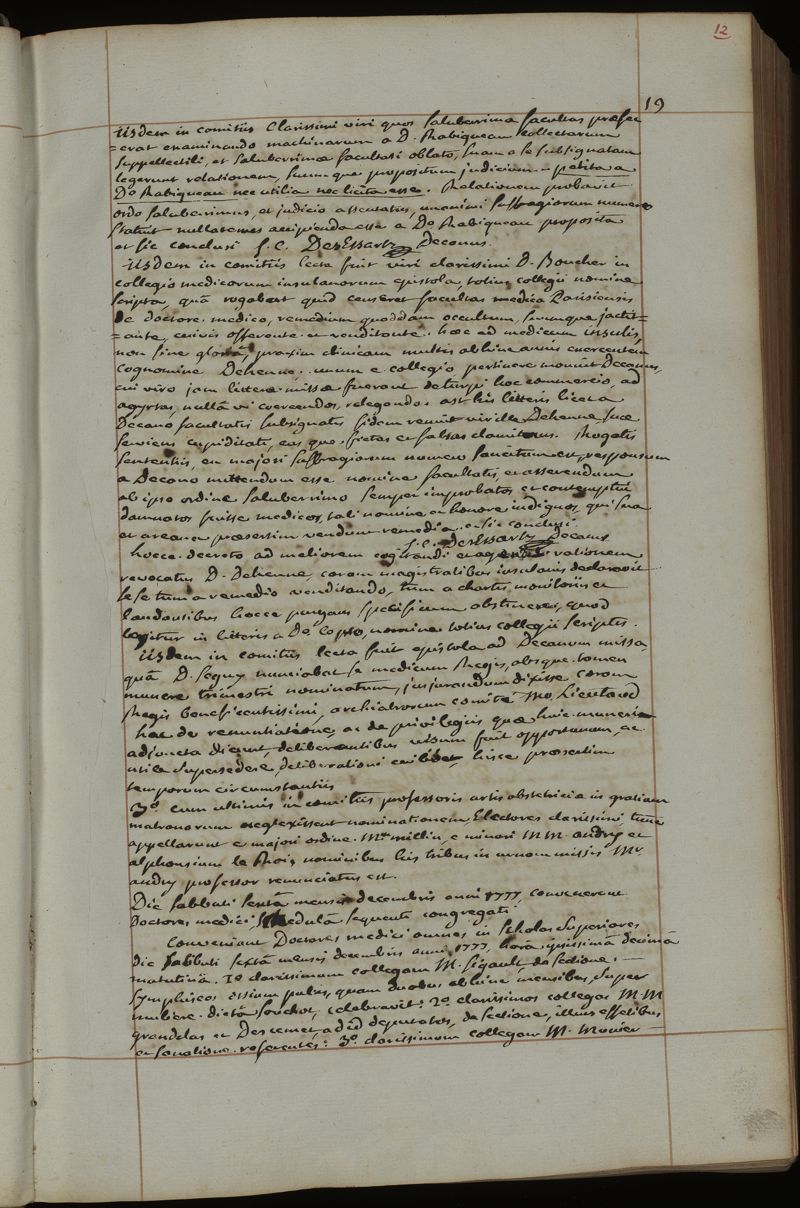 12
19
iisdem in comitiis Clarissimi viri quos saluberrima facultas præfec
=erat examinando machinarum a D. Rabiqueau collectarum
suppellectili, et saluberrimæ facultati oblatæ, suam a se subsignatam
legerunt relationem, suumque propositum judicium - petita a
Do Rabiqueau nec utilia nec licita esse. Relationem probavit
ordo saluberrimus, et judicio assentatus, unanimi suffragiorum numero
statuit nullatenus accipienda esse a Do Rabiqueau proposita
et sic conclusi J. C. DesEssartz Decanus.
iisdem in comitiis lecta fuit viri clarissimi D. Boucher in
collegio medicorum insulanorum epistola, totius collegii nomine
scripta, quâ rogabat quid censeret facultas medica Parisiensis
de doctore medico, remedium quoddam occultum, suumque jactit=
=ante, cuivis offerente et venditante. hæc ad medicum insulis,
non sine gloriâ, praxim clinicam multis abhinc annis exercentem
cognomine Dehenne, unum e collegio pertinere monuit Decanus,
cui viro jam litteræ missæ fuerant de turpi hoc commercio, ad
agyrtas, nullâ vi coercendos, relegando. ast his litteris licet a
Decano facultatis subsignatis fidem renuit vir ille Dehenne, suæ
serviens cupiditati, eas que fictas et falsas clamitans. Rogatis
sententiis, ex majori suffragiorum numero sancitum est, responsum
a Decano mittendum esse nomine facultatis, et asserendum
ab ipso ordine saluberrimo semper improbatos et contemptui
damnatos fuisse medicos, tali nomine et honore indignos, qui sua
et arcana præsertim vendunt remedia. et sic conclusi.
J. C. DesEssartz Decanus
hocce decreto ad meliorem cogitandi et agendi rationem
revocatus D. Dehenne, coram magistratibus insulanis declaravit
se se tum a remedio venditando, tum a chartis monitoriis et
laudantibus hocce purgans specificum abstinere, quod
legitur in litteris a De Copto, nomine totius collegii scriptis.
iisdem in comitiis lecta fuit epistola ad Decanum missa
quâ D. Seguy nunciabat se medicum Regis, absque tamen
munere trimestri nominatum, jusjurandum dixisse coram
Regis beneficentissimi, archiatrorum comite mo Lieutaud
hac de renuntiatione, ac de privilegiis quæ huic muneri
adjuncta dicunt, deliberantibus visum fuit opportunum, ac
utile supersedere, deliberationi cuilibet, hisce præsertim
temporum circumstantiis
3o. cum ultimis in comitiis professoris artis obstetriciæ in gratiam
matronarum neglexissent nominationem, Electores clarissimi, tunc
appellarunt e majori ordine. Mm millin, e minori MM. andry et
alphonsum le Roi, nominibus his tribus in urnam missis Mr.
andry professor renunciatus est.
Die sabbati sextâ mensis decembris anni 1777, convenerunt
Doctores medici, schedulâ sequenti congregati.
Conveniant Doctores medici omnes in scholas superiores
die sabbati sextâ mensis decembris anni 1777, horâ ipsissimâ decimâ
matutinâ. 1o clarissimum collegam M. Sigault, de sectione. -
symphiseos ossium pubis, quam duobus abhinc mensibus, super
muliere dictâ souchot, celebravit: 2o clarissimos collegas MM
grandclas et Descemet, ad id deputatos, de sectione, illius effectibus
et sanatione. referentes: 3o. clarissimum collegam M. Monier